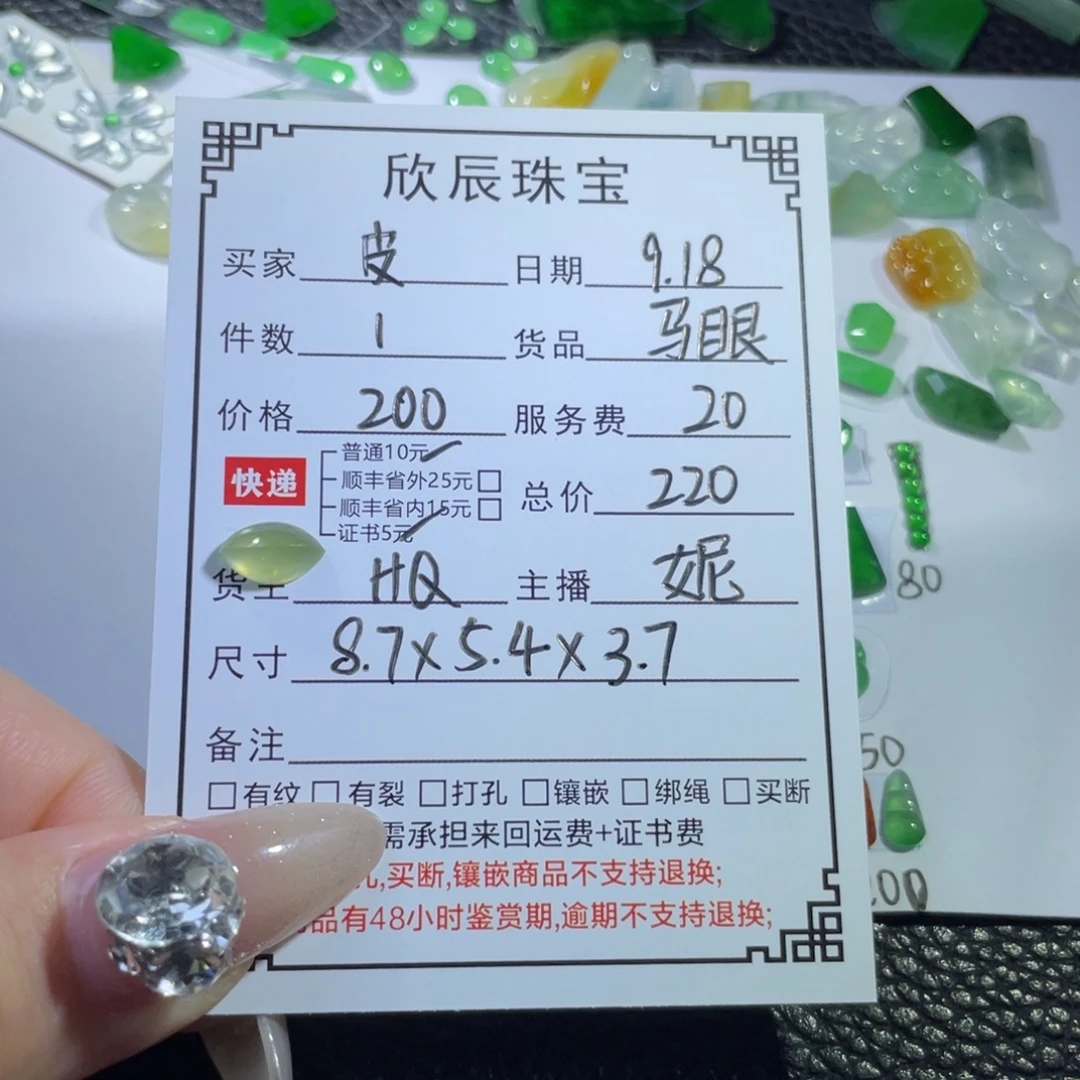 欣辰珠宝
买家 皮 日期 9.18
件数 1 货品 马眼
价格 200 服务费 20
快递
普通10元
顺丰省外25元
顺丰省内15元
证书5元
总价 220
货主 HQ 主播 妮
尺寸 8.7x5.4x3.7
备注
有纹 有裂 打孔 镶嵌 绑绳 买断
需承担来回运费+证书费
孔,买断,镶嵌商品不支持退换;
品有48小时鉴赏期,逾期不支持退换;
80
50
200